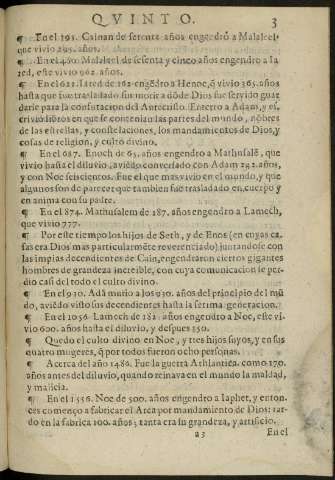 QVINTO. 3
¶ En el 395. Cainan de setenta años engendró a Malaleel
que vivio 895. años.
¶ En el 460. Malaleel de sesenta y cinco años engendro a Ia
red, este vivio 962. años.
¶ En el 622. Iared de 162 engẽdro a Henoc, q̃ vivio 365. años
hasta que fue trasladado sin morir a dõde Dios fue servido guar
darle para la confutacion del Antecristo. Enterro a Adam, y es
crivio libros en que se contenian las partes del mundo, nõbres
de las estrellas, y constelaciones, los mandamientos de Dios, y
cosas de religion, y culto divino.
¶ En el 687. Enoch de 65. años engendro a Mathusalẽ, que
vivio hasta el diluvio, aviẽdo conversado con Adam 243. años,
y con Noe seiscientos. Fue el que mas vivio en el mundo, y que
algunos son de parecer que tambien fue trasladado en cuerpo y
en anima con su padre.
¶ En el 874. Mathusalem de 187. años engendro a Lamech,
que vivio 777.
¶ Por este tiempo los hijos de Seth, y de Enos (en cuyas ca-
sas era Dios mas particularmẽte reverenciado) juntandose con
las impias decendientes de Cain, engendraron ciertos gigantes
hombres de grandeza increible, con cuya comunicacion se per-
dio casi del todo el culto divino.
¶ En el 930. Adã murio a los 930. años del principio del mũ
do, aviẽdo visto sus decendientes hasta la setima generacion.
¶ En el 1056. Lamech de 182. años engendro a Noe, este vi-
vio 600. años hasta el diluvio, y despues 350.
¶ Quedo el culto divino en Noe, y tres hijos suyos, y en sus
quatro mugeres, q̃ por todos fueron ocho personas.
¶ Acerca del año 1486. Fue la guerra Athlantica. como 170.
años antes del diluvio, quando reinava en el mundo la maldad,
y malicia.
¶ En el 1556. Noe de 500. años engendro a Iaphet, y enton-
ces començo a fabricar el Arca por mandamiento de Dios: tar-
do en la fabrica 100. años; tanta era su grandeza, y artificio.
a3 En el